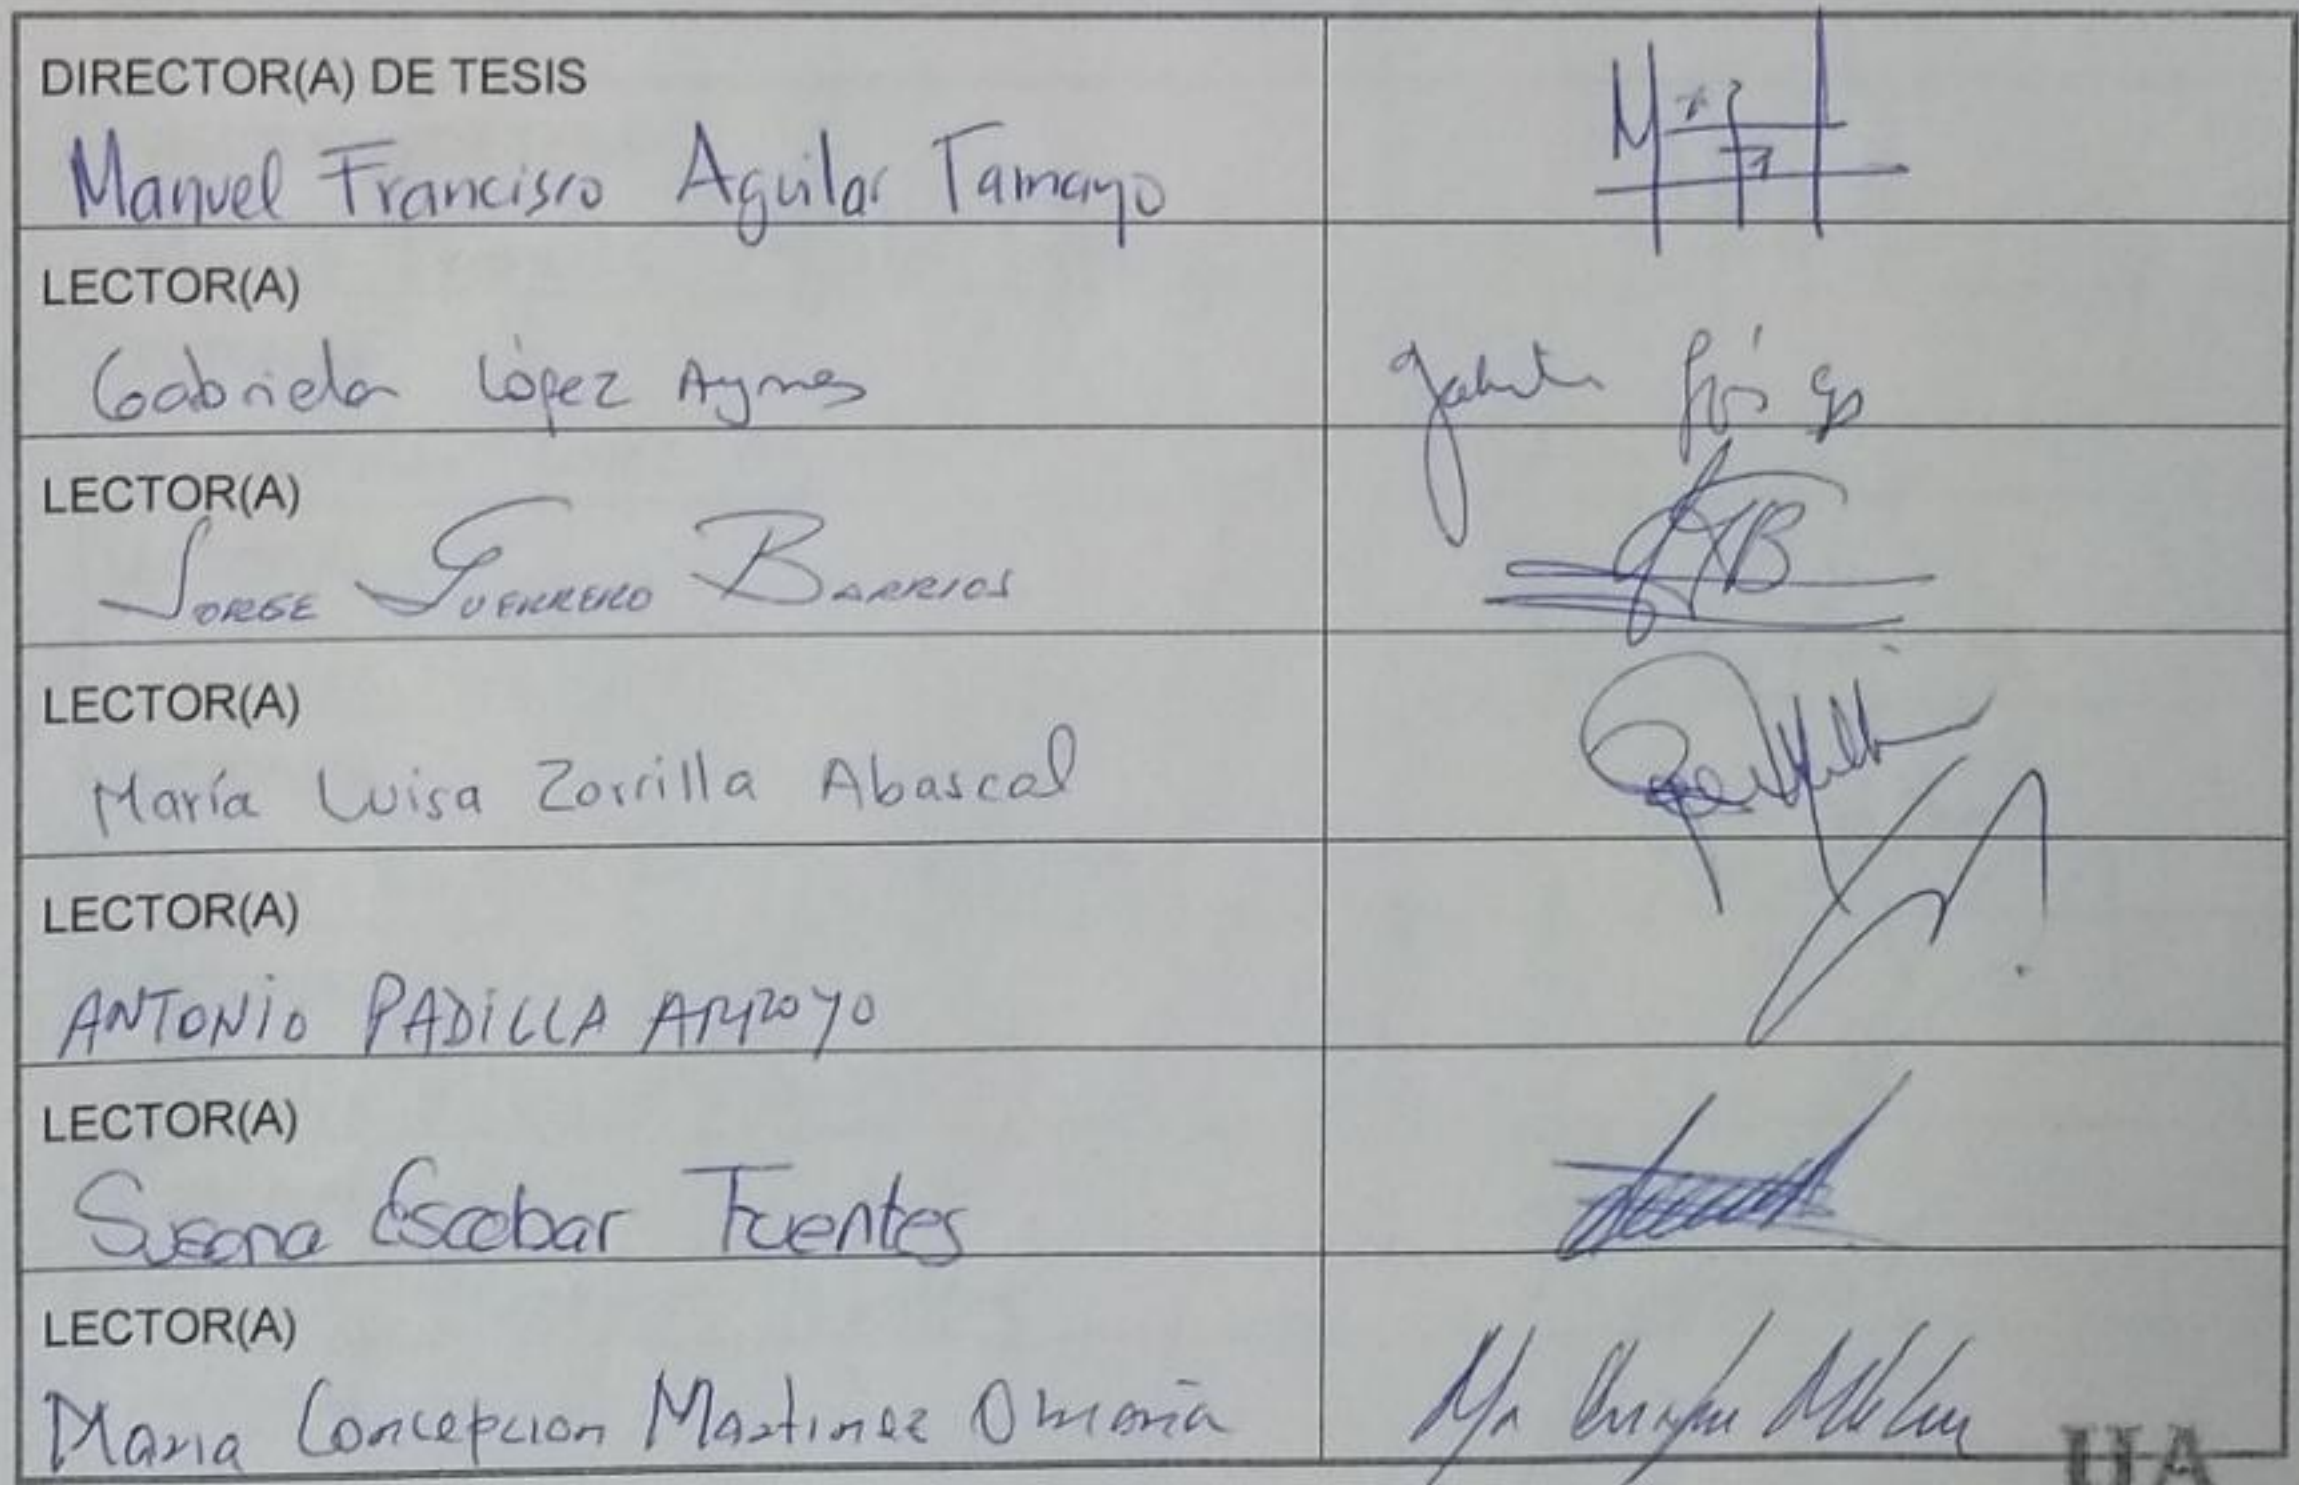 DIRECTOR(A) DE TESIS
Manuel Francisco Aguilar Tamayo
LECTOR(A)
Gabriela López Aymes
LECTOR(A)
JORGE GUERRERO BARRIOS
LECTOR(A)
María Luisa Zorrilla Abascal
LECTOR(A)
ANTONIO PADILLA ARROYO
LECTOR(A)
Susana Escobar Fuentes
LECTOR(A)
Maria Concepcion Martinez Omaña
UA